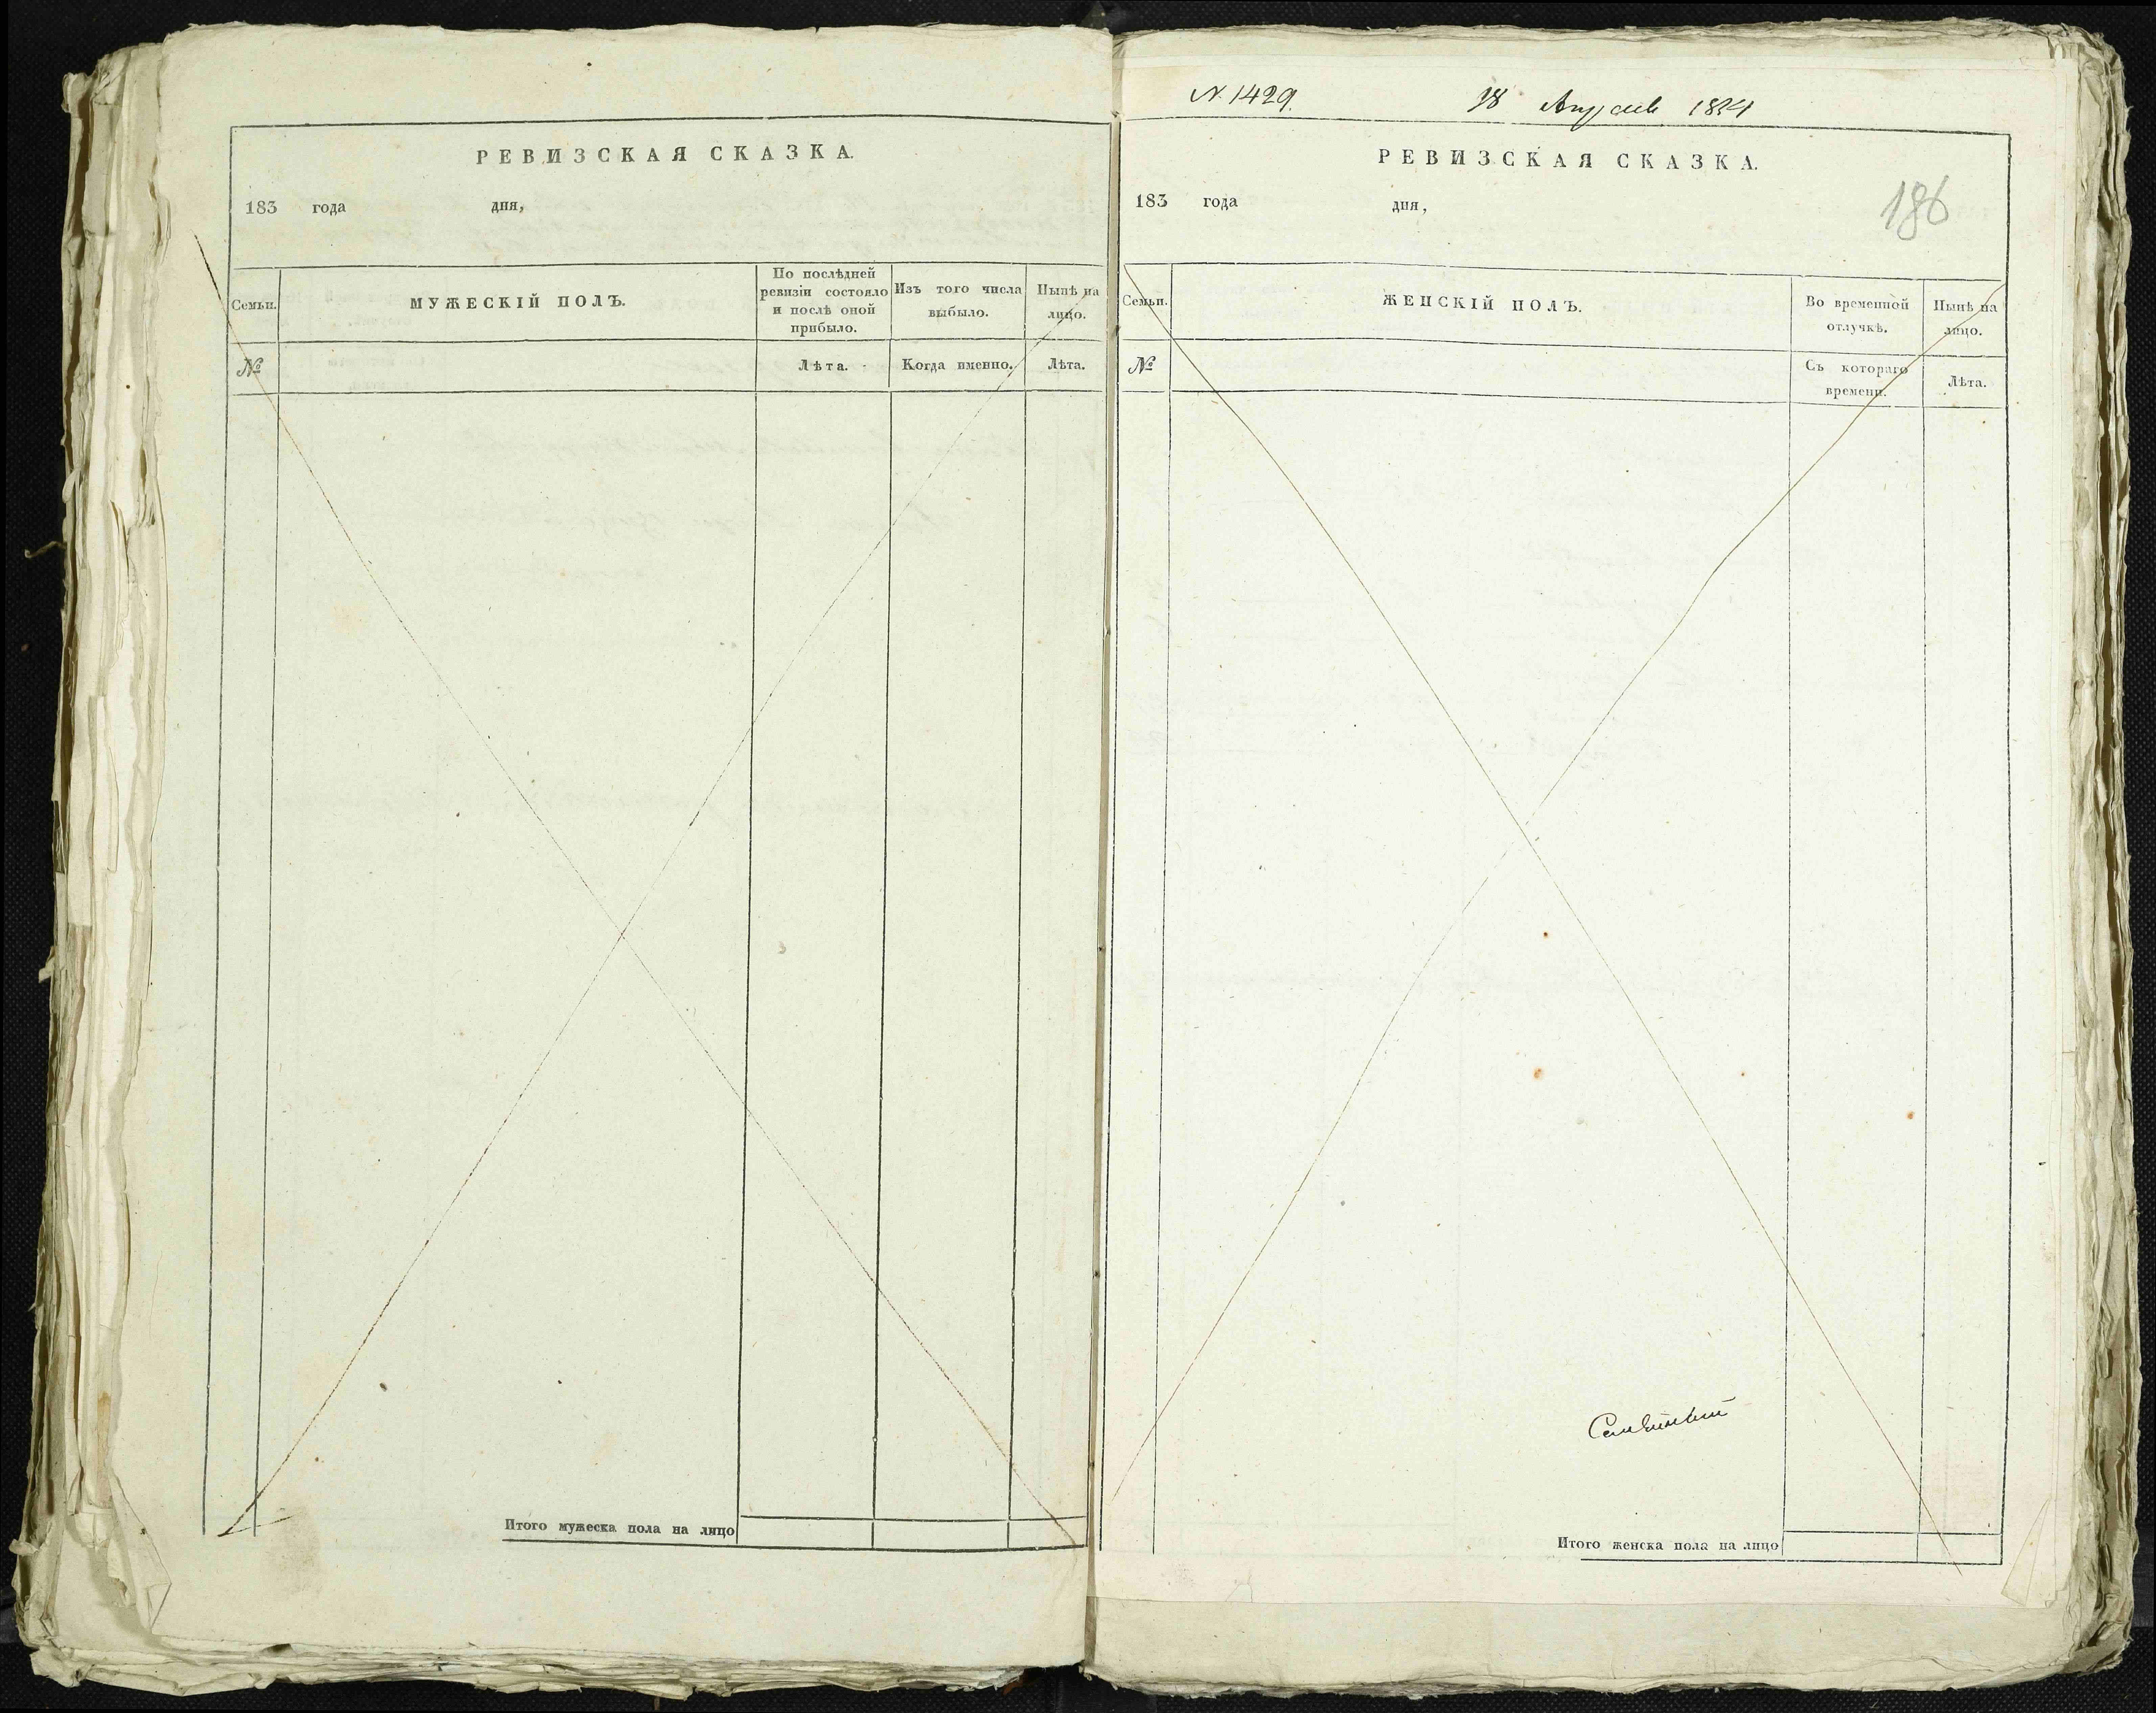 РЕВИЗСКАЯ СКАЗКА.
183 года дня,
Семьи.
МУЖЕСКІЙ ПОЛЪ.
По послѣдней ревизіи состояло и послѣ оной прибыло.
Изъ того числа выбыло.
Нынѣ на лицо.
№
Лѣта.
Когда именно.
Лѣта.
Итого мужеска пола на лицо
N. 1429. 18 Апреля 1834
РЕВИЗСКАЯ СКАЗКА.
183 года дня,
186
Семьи.
ЖЕНСКІЙ ПОЛЪ.
Во временной отлучкѣ.
Нынѣ на лицо.
№
Съ котораго времени.
Лѣта.
Итого женска пола на лицо